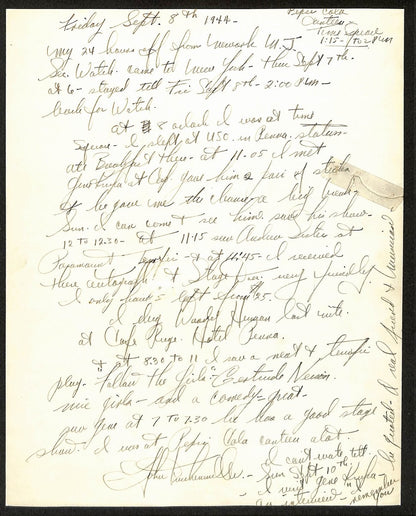 Friday Sept. 8th 1944-
Pepsi Cola
Canteen
Time Square
1:15 - to 2 PM
My 24 hours off from Newark N.J.
Sec. Watch. came to New York - Thur Sept 7th-
at 6 - stayed till Fri Sept 8th - 2:00 PM -
back for Watch.
at 8 oclock I was at time
square - I slept at USO. in Penna. station
ate Breakfast there - at 11.05 I met
Gene Krupa at Cap. gave him a pair of sticks
& he gave me the chance a big break -
Sun. I can come & see him. saw his show -
12 to 12.30 - at 11.15 saw Andrew Sisters at
Paramount & at 11:45 - I received
there autograph & Stage Door. very friendly.
I only have left from 25.
I dug Woody Herman last nite.
at Cafe Rouge. Hotel Penna.
& at 8.30 to 11 I saw a neat & terrific
play - "Follow the Girls" - Gertrude Niesen.
nice girls - and a comedy - great.
saw Gene at 7 to 7.30 he has a good stage
show. I was at Pepsi Cola canteen alot.
I can't wait till
Sun. Sept 10th -
I meet Gene Krupa -
An interview -
remember
you
the greatest - A real friend &